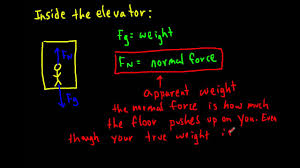 Inside the elevator:
Fg = weight
FN
FN = normal force
Fg
apparent weight
the normal force is how much
the floor pushes up on you. Even
though your true weight is